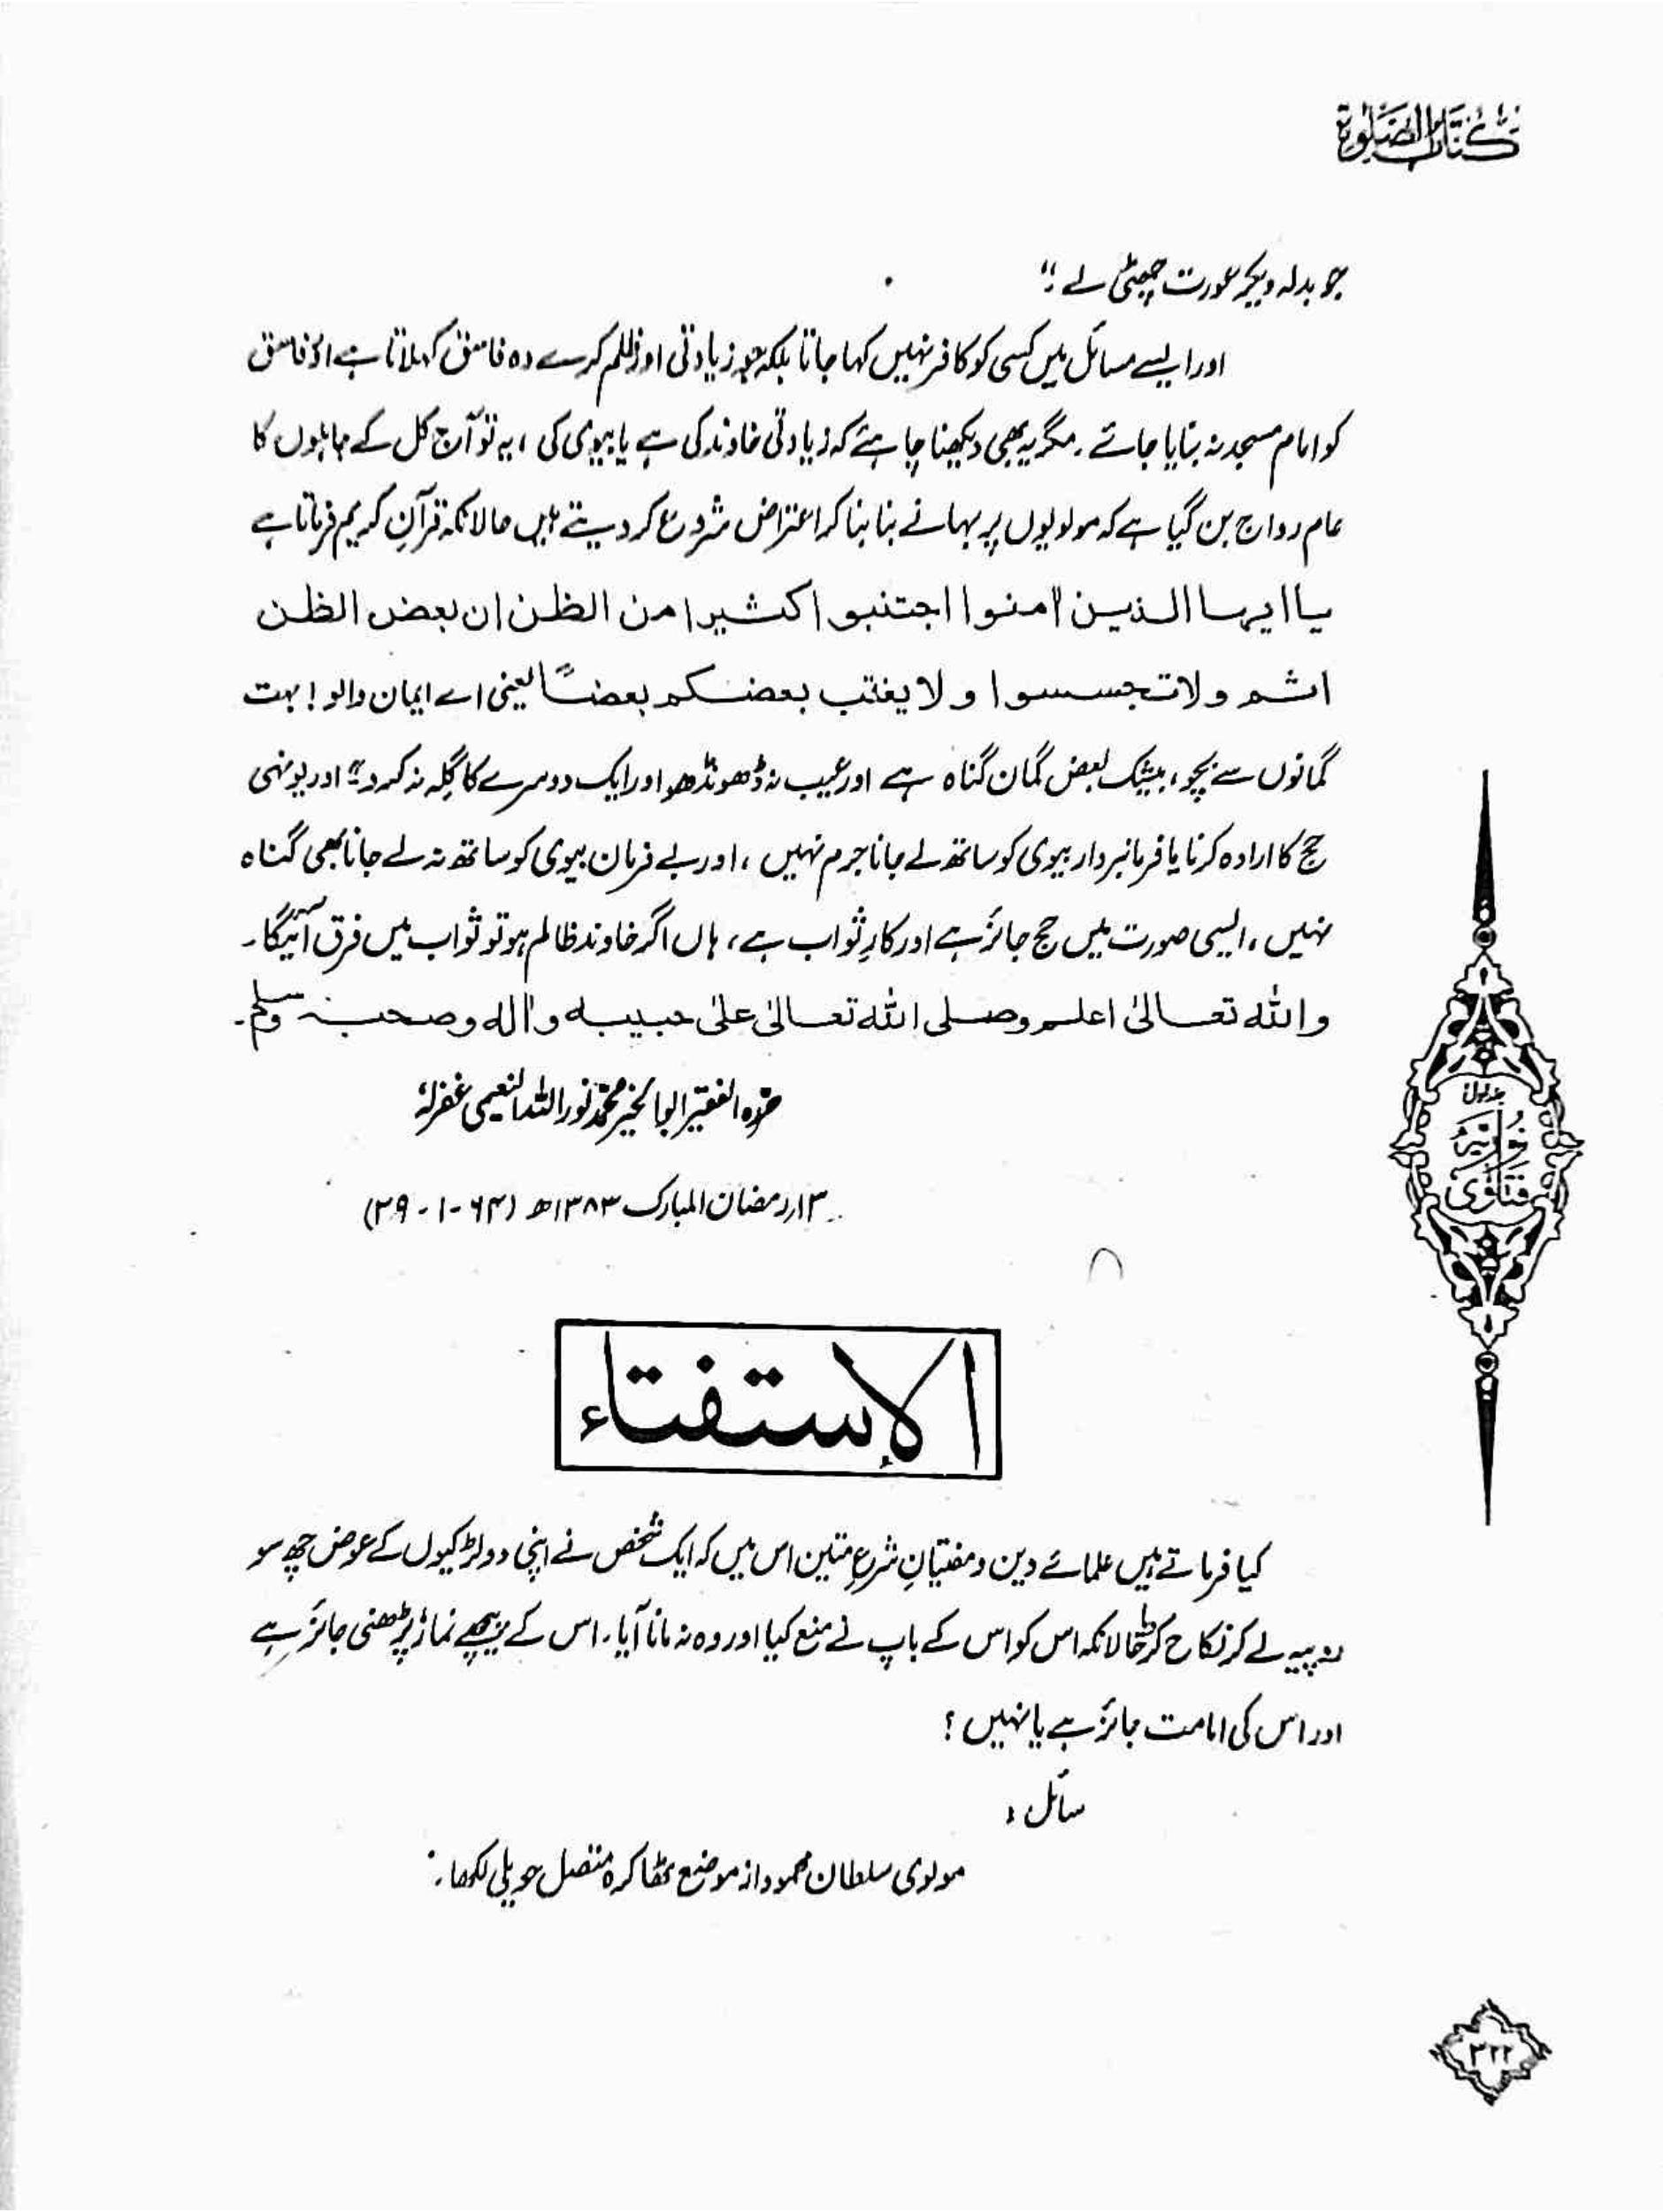 كتاب الصلوٰة
جو بدلہ دیکر عورت چھٹی لے ؛"
اور ایسے مسائل میں کسی کو کافر نہیں کہا جاتا بلکہ جو زیادتی اور ظلم کرے وہ فاسق کہلاتا ہے اور فاسق
کو امام مسجد نہ بنایا جائے ۔ مگر یہ بھی دیکھنا چاہئے کہ زیادتی خاوند کی ہے یا بیوی کی ، یہ تو آج کل کے جاہلوں کا
عام رواج بن گیا ہے کہ مولویوں پر بہانے بنا بنا کر اعتراض شروع کر دیتے ہیں حالانکہ قرآن کریم فرماتا ہے
یا ایہا الذین اٰمنوا اجتنبوا کثیرا من الظن ان بعض الظن
اثم ولا تجسسوا و لا یغتب بعضکم بعضاً یعنی اے ایمان والو ! بہت
گمانوں سے بچو ، بیشک بعض گمان گناہ ہے اور عیب نہ ڈھونڈھو اور ایک دوسرے کا گِلہ نہ کرو ؛" اور یونہی
حج کا ارادہ کرنا یا فرمانبردار بیوی کو ساتھ لے جانا جرم نہیں ، اور بے فرمان بیوی کو ساتھ نہ لے جانا بھی گناہ
نہیں ، ایسی صورت میں حج جائز ہے اور کارِ ثواب ہے ، ہاں اگر خاوند ظالم ہو تو ثواب میں فرق آئیگا ۔
واللہ تعالیٰ اعلم وصلی اللہ تعالیٰ علیٰ حبیبہ واٰلہ وصحبہ وسلم ۔
حررہ الفقیر ابوالخیر محمد نور اللہ النعیمی غفرلہٗ
۱۳؍ رمضان المبارک ۱۳۸۳ھ (۶۴-۱-۲۹)
جلد اول
فتاویٰ نوریہ
الإستفتاء
کیا فرماتے ہیں علمائے دین و مفتیانِ شرعِ متین اس میں کہ ایک شخص نے اپنی دو لڑکیوں کے عوض چھ سو
روپیہ لے کر نکاح کر حالانکہ اس کو اس کے باپ نے منع کیا اور وہ نہ مانا آیا ۔ اس کے پیچھے نماز پڑھنی جائز ہے
اور اس کی امامت جائز ہے یا نہیں ؟
سائل :
مولوی سلطان محمود از موضع ٹھاکرہ متصل حویلی لکھا ۔
۳۲۲